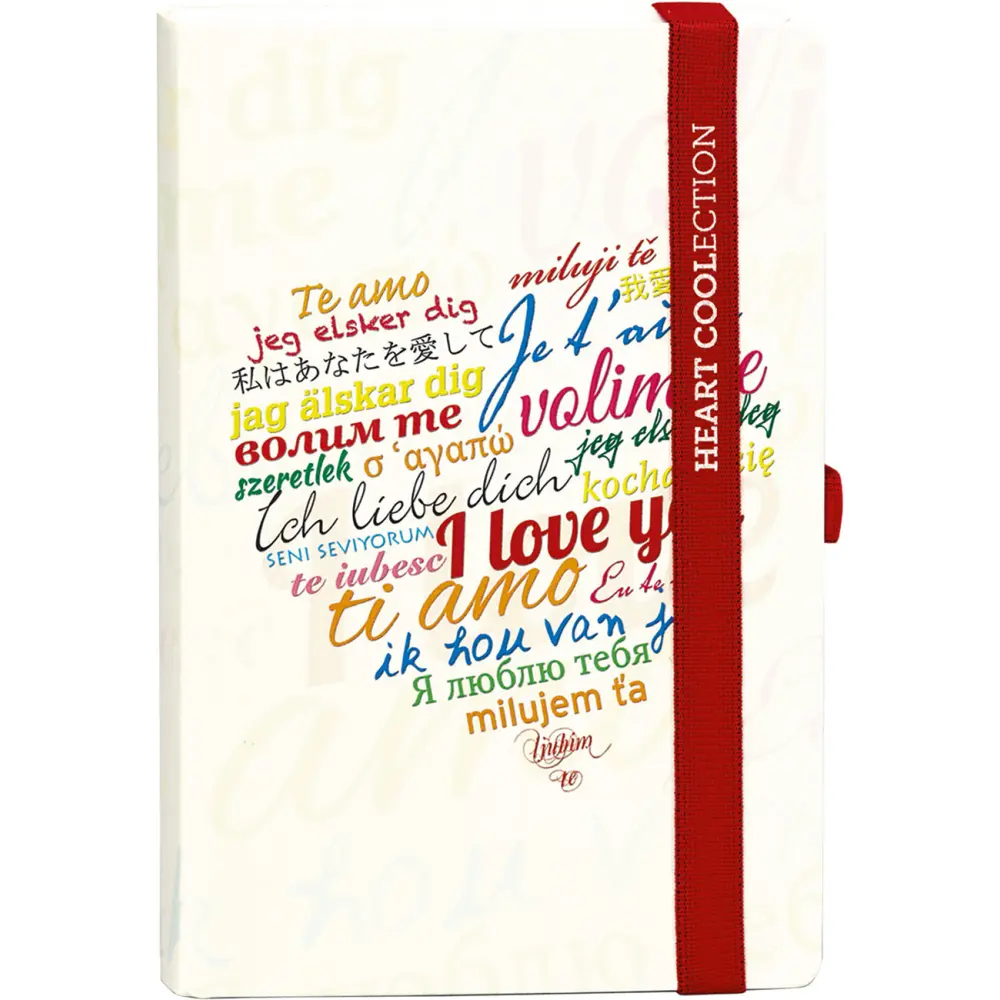 Te amo
miluji tě
jeg elsker dig
我愛
私はあなたを愛して
Je t'ai
jag älskar dig
volim e
волим те
jeg els deg
szeretlek
σ 'αγαπώ
kocha ię
Ich liebe dich
SENI SEVIYORUM
I love y
te iubesc
ti amo
Eu te
ik hou van j
Я люблю тебя
milujem ťa
ljubim
te
HEART COOLECTION